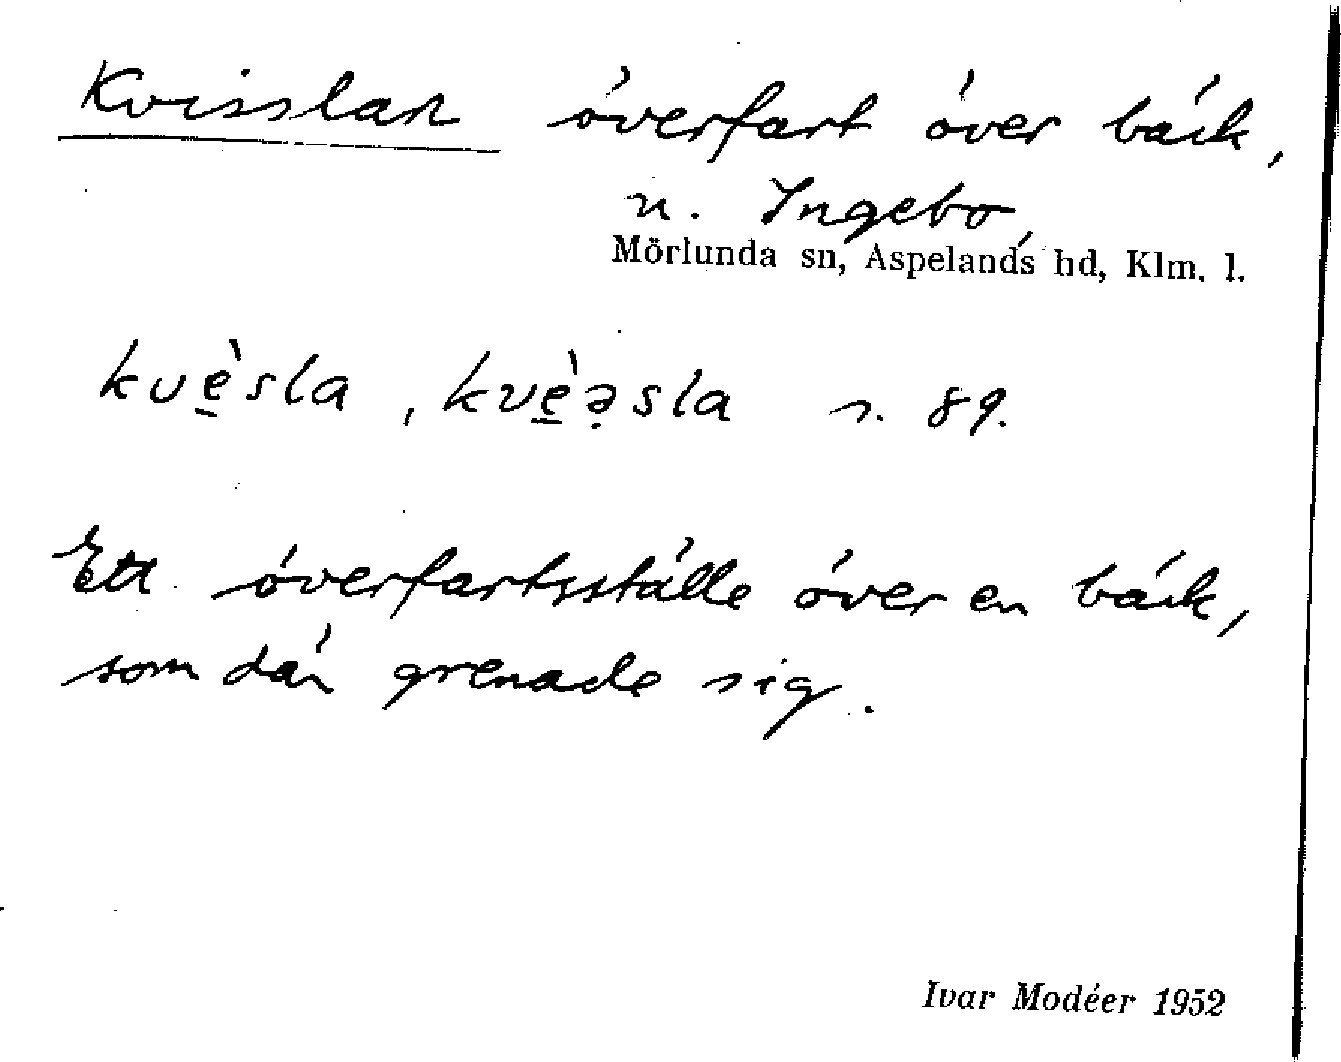 Kvisslan överfart över bäck,
u. Ingebo,
Mörlunda sn, Aspelands hd, Klm. l.
kvè̠sla, kvè̠ə̣sla s. 89.
Ett överfartsställe över en bäck,
som där grenade sig.
Ivar Modéer 1952